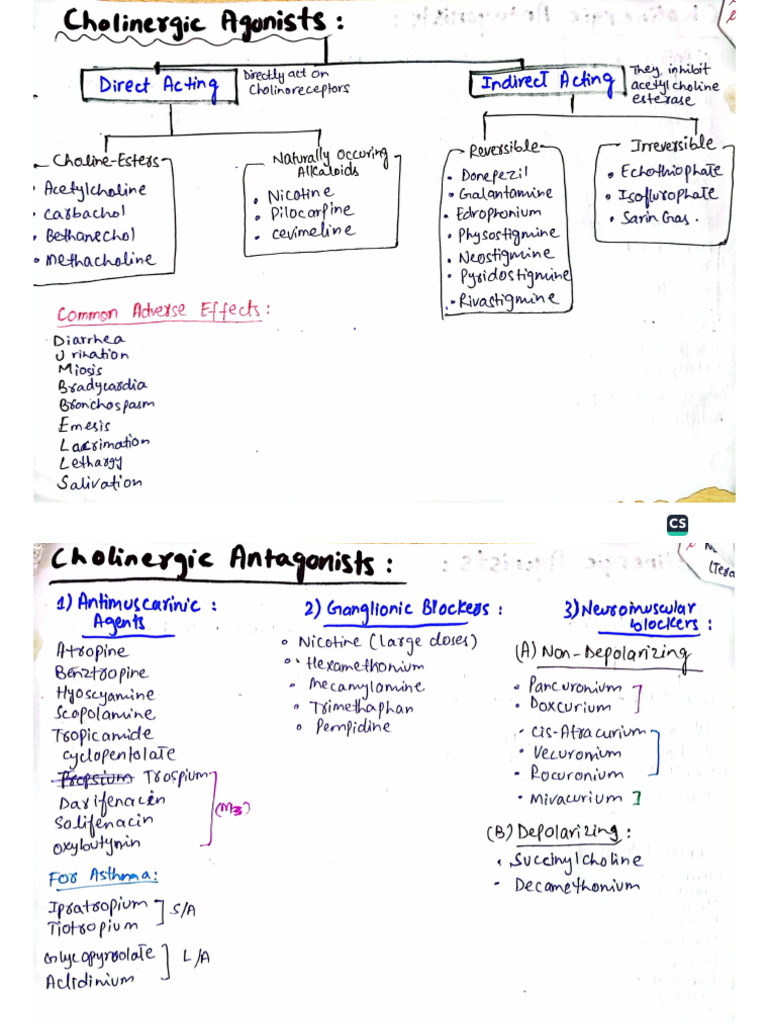 Cholinergic Agonists :
Direct Acting
Directly act on
Cholinoreceptors
Indirect Acting
They inhibit
acetylcholine
esterase
Choline-Esters
• Acetylcholine
• Carbachol
• Bethanechol
• Methacholine
Naturally Occuring
Alkaloids
• Nicotine
• Pilocarpine
• Cevimeline
Reversible
• Donepezil
• Galantamine
• Edrophonium
• Physostigmine
• Neostigmine
• Pyridostigmine
• Rivastigmine
Irreversible
• Echothiophate
• Isoflurophate
• Sarin Gas.
Common Adverse Effects:
Diarrhea
Urination
Miosis
Bradycardia
Bronchospasm
Emesis
Lacrimation
Lethargy
Salivation
CS
Cholinergic Antagonists :
1) Antimuscarinic :
Agents
Atropine
Benztropine
Hyoscyamine
Scopolamine
Tropicamide
Cyclopentolate
Trospium
Darifenacin
Solifenacin
Oxybutynin
(M3)
For Asthma:
Ipratropium
Tiotropium
S/A
Glycopyrrolate
Aclidinium
L/A
2) Ganglionic Blockers :
• Nicotine (large doses)
• Hexamethonium
• Mecamylamine
• Trimethaphan
• Pempidine
3) Neuromuscular
blockers :
(A) Non-Depolarizing
• Pancuronium
• Doxcurium
• Cis-Atracurium
• Vecuronium
• Rocuronium
• Mivacurium
(B) Depolarizing :
• Succinylcholine
• Decamethonium